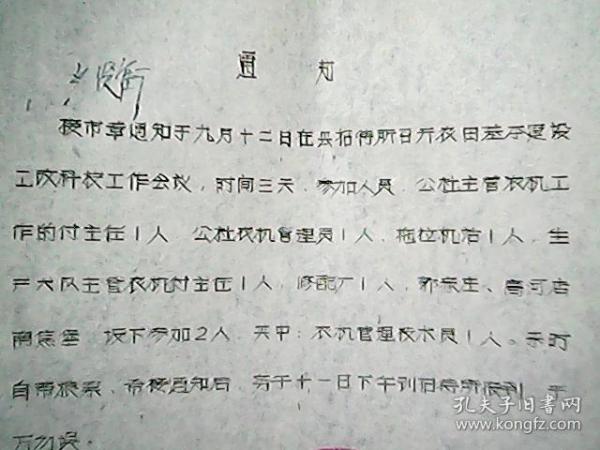 通 知
接市章通知于九月十二日在县招待所召开农田基本建设
工改种农工作会议，时间三天，参加人员．公社主管农机工
作的付主任1人 公社农机管理员1人，拖拉机站1人，生
产大队主管农机付主任1人，修配厂1人，郭家庄、高河店
南焦堡 坂下参加2人 其中：农机管理技术员1人。
自带粮票，希接通知后，务于十一日下午到招待所报到，千
万勿误．
孔夫子旧书网
www.kongfz.com